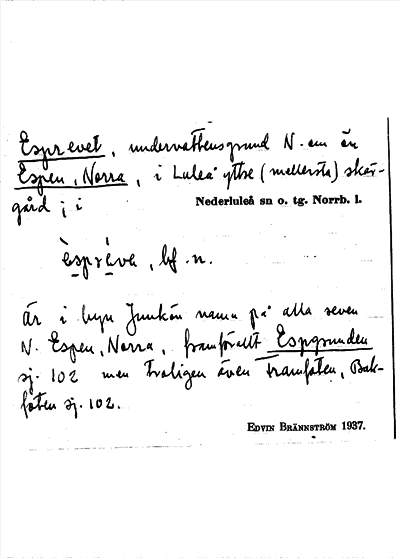 Esprevet, undervattensgrund N. om ön
Espen, Norra, i Luleå yttre (mellersta) skär-
gård; i
Nederluleå sn o. tg. Norrb. l.
èspréva, bf. n.
är i byn Junkön namn på alla reven
N. Espen, Norra, framförallt Espgrunden
sj. 102 men troligen även Framfoten, Bak-
foten sj. 102.
EDVIN BRÄNNSTRÖM 1937.